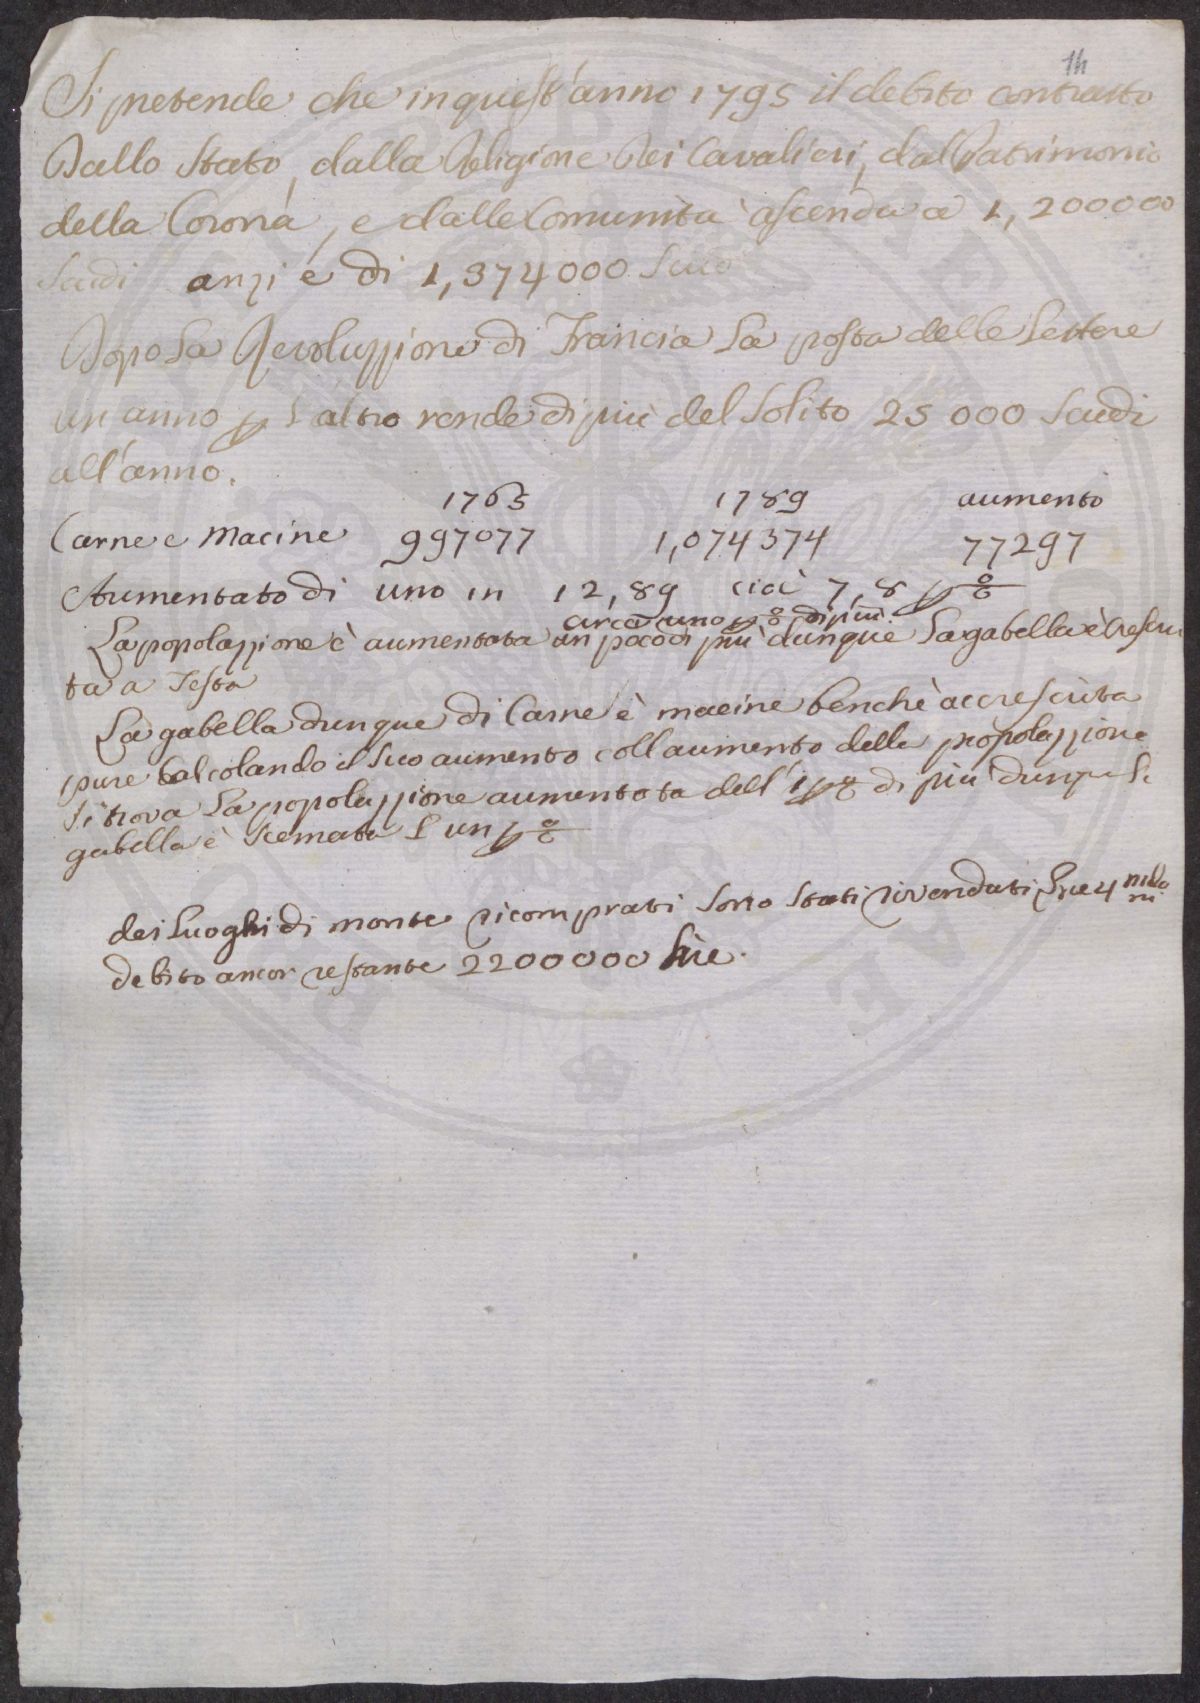 14
Si pretende che in quest'anno 1795 il debito contratto
Dallo Stato, dalla Religione Dei Cavalieri, dal Patrimonio
della Corona, e dalle Comunità ascenda a 1,200000
Scudi anzi è di 1,374000 Scudi
Dopo La Revoluzzione di Francia La posta delle Lettere
un anno p L'altro rende di più del Solito 25 000 Scudi
all'anno.
1765 1789 aumento
Carne e Macine 997077 1,074374 77297
Aumentato di uno in 12,89 cioè 7,8 p%
circa uno p% di più
La popolazzione è aumentata un poco di più dunque La gabella è cresciu
ta a Testa
La gabella dunque di Carne è macine benchè accresciuta
pure Calcolando il Suo aumento coll aumento della popolazzione
Si trova La popolazzione aumentata dell' 1 p% di più dunque La
gabella è Scemata L'un p%
dei Luoghi di monte ricomprati Sono Stati rivenduti Lire 4
debito ancor restante 2200000 Lire.